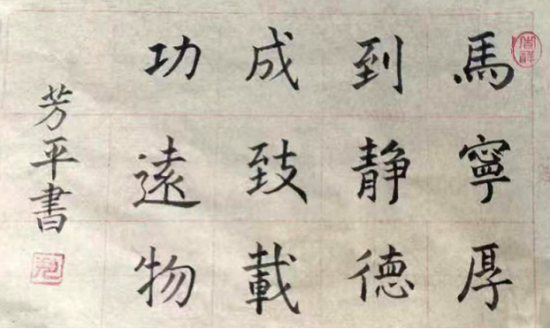 馬到成功
寧静致遠
厚德載物
芳平書